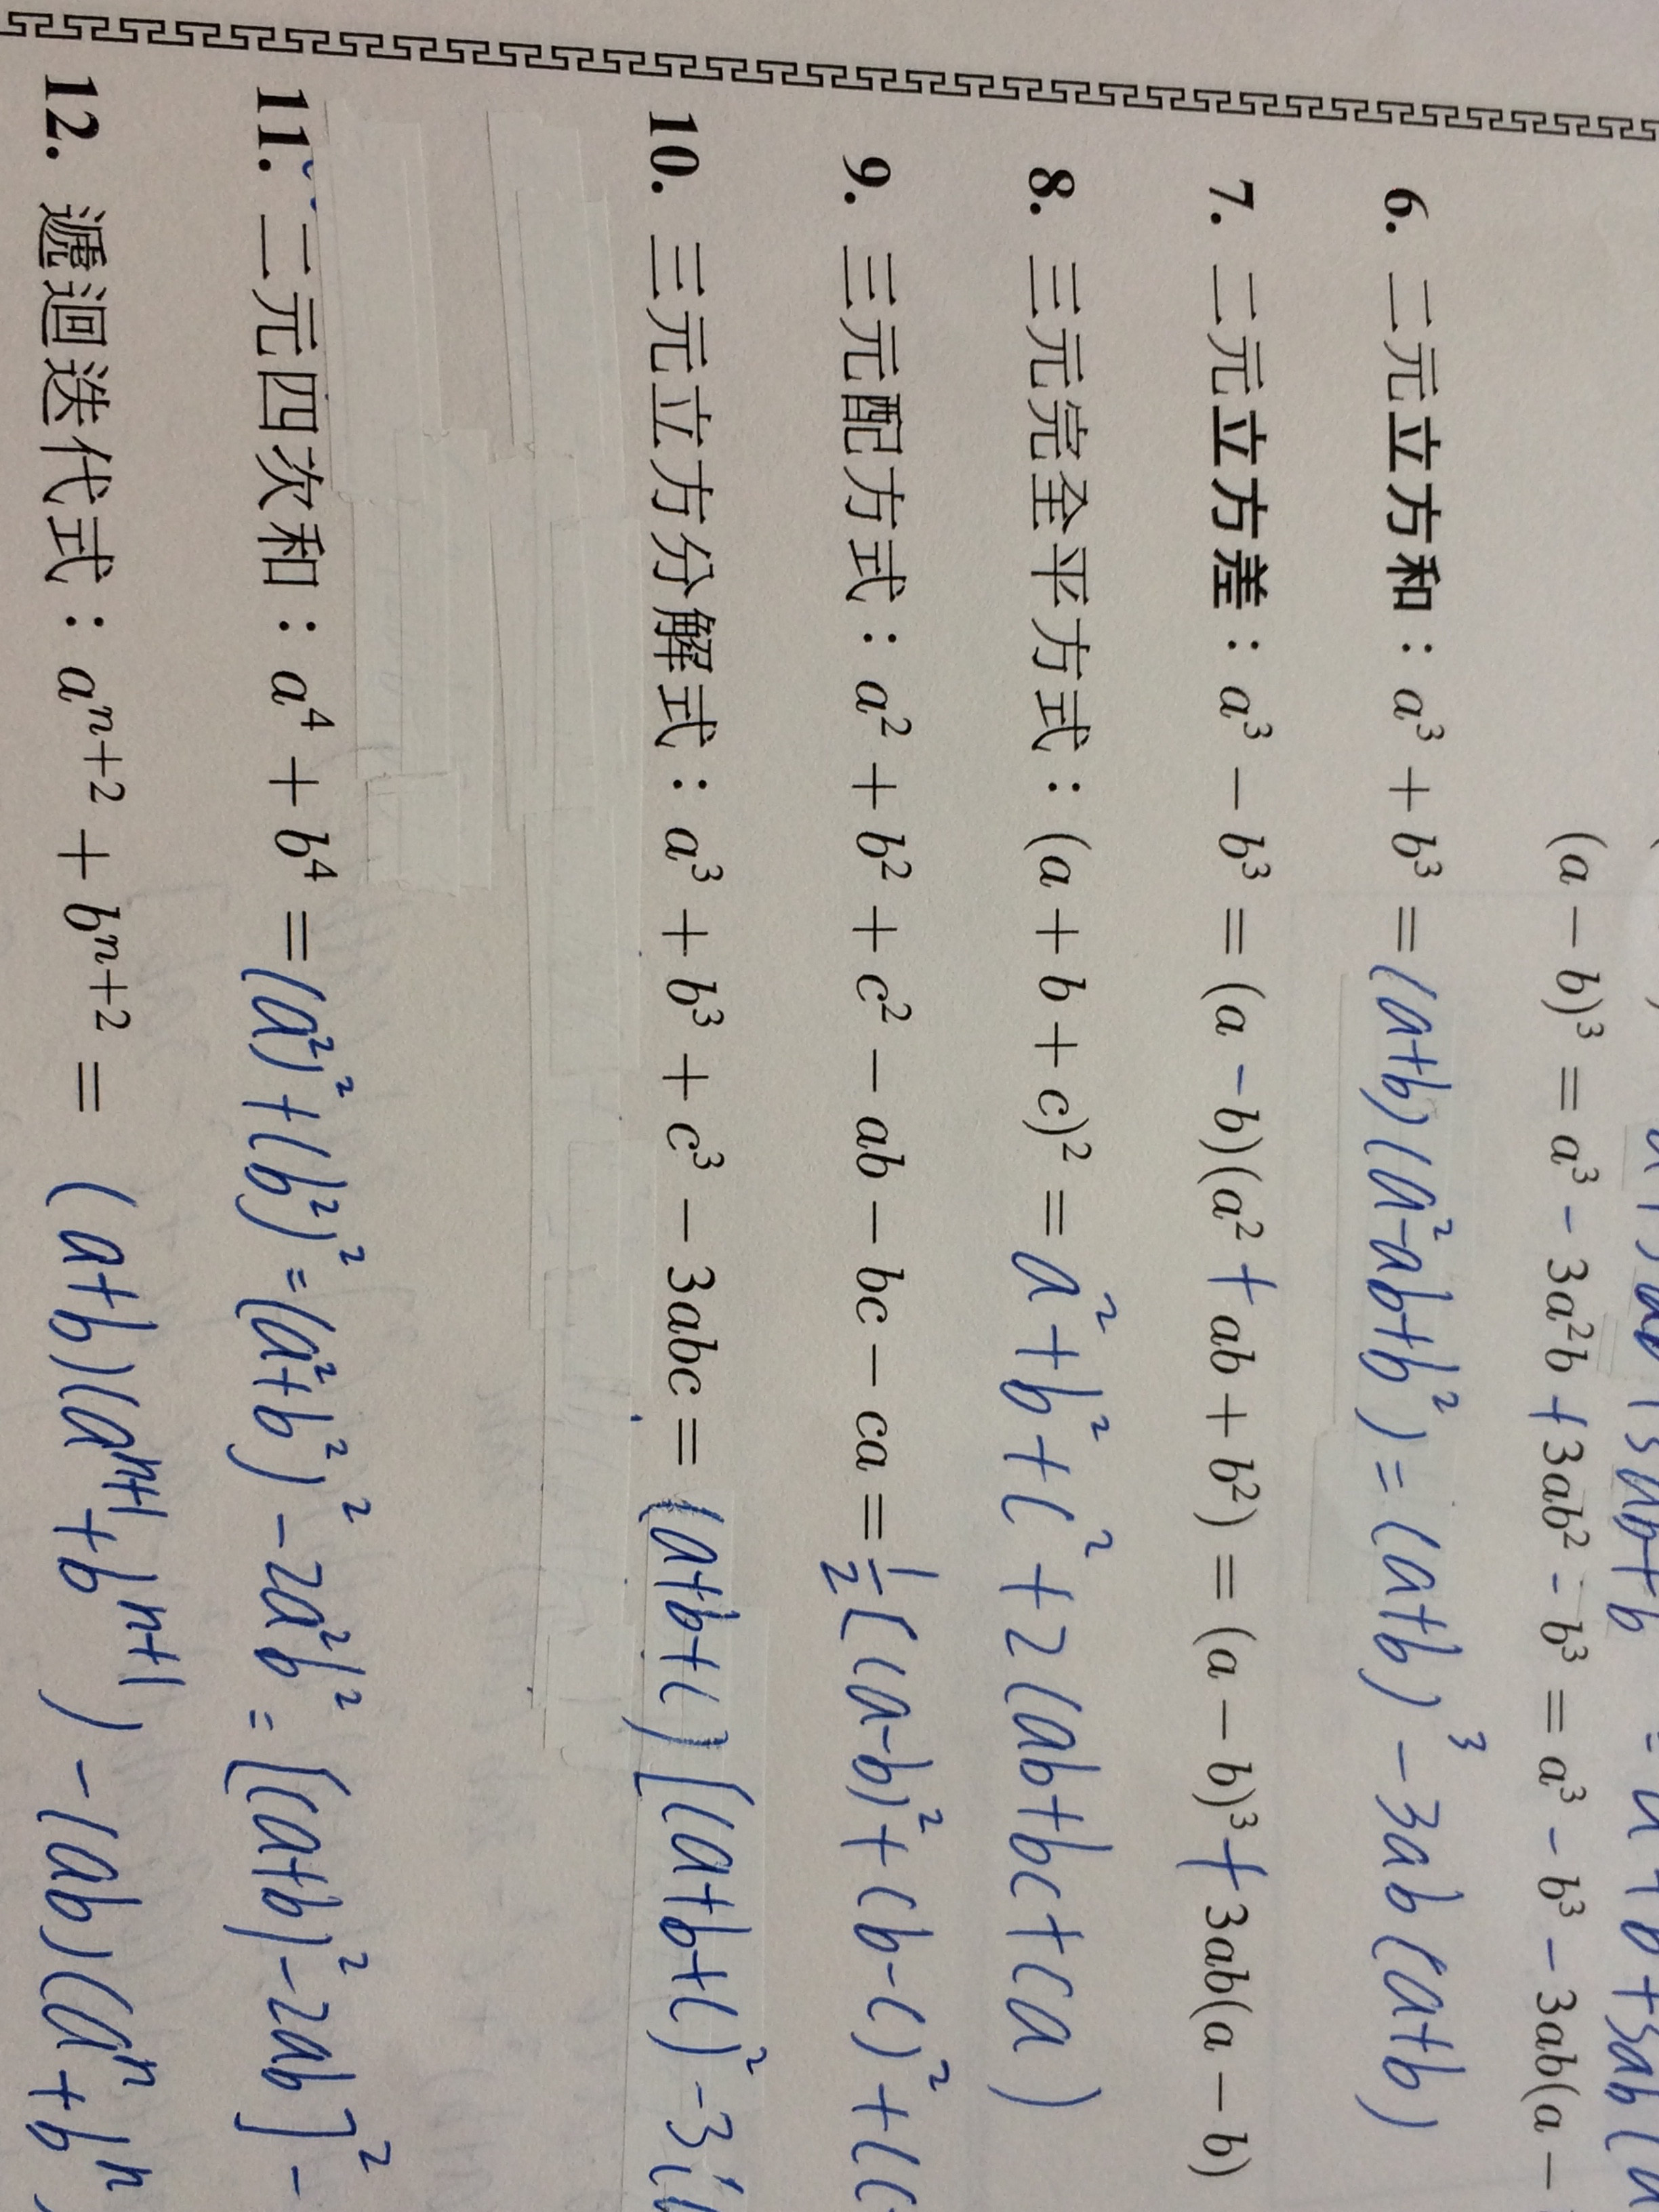 (a − b)³ = a³ − 3a²b + 3ab² − b³ = a³ − b³ − 3ab(a −
6. 二元立方和：a³ + b³ = (a+b)(a²-ab+b²) = (a+b)³ - 3ab(a+b)
7. 二元立方差：a³ − b³ = (a − b)(a² + ab + b²) = (a − b)³ + 3ab(a − b)
8. 三元完全平方式：(a + b + c)² = a²+b²+c²+2(ab+bc+ca)
9. 三元配方式：a² + b² + c² − ab − bc − ca = ½[(a-b)²+(b-c)²+(c-
10. 三元立方分解式：a³ + b³ + c³ − 3abc = (a+b+c)[(a+b+c)²-3(
11. 二元四次和：a⁴ + b⁴ = (a²)²+(b²)²=(a²+b²)²-2a²b²=[(a+b)²-2ab]²-
12. 遞迴迭代式：aⁿ⁺² + bⁿ⁺² = (a+b)(aⁿ⁺¹+bⁿ⁺¹)-(ab)(aⁿ+bⁿ